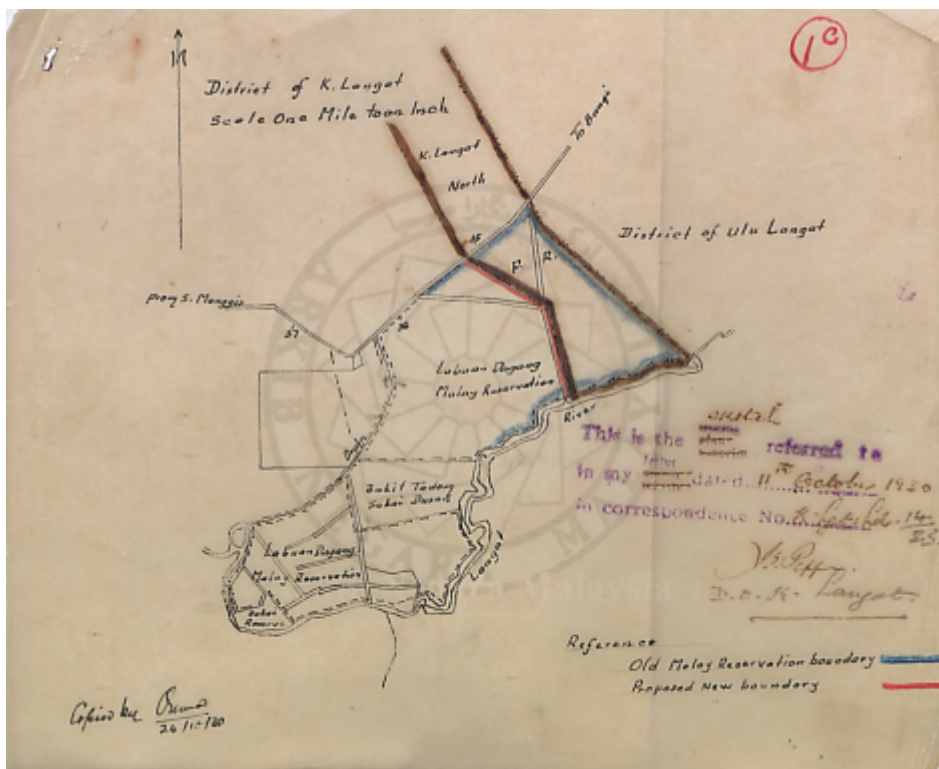 1c
N
District of K. Langat
Scale One Mile to an Inch
To Bangi
K. Langat
North
District of Ulu Langat
F. R.
From S. Manggis
37
36
35
Labuan Dagang
Malay Reservation
River
Langat
Bukit Tadong
Sakai
Labuan Dagang
Malay Reservation
Sakai
Reserve
This is the sketch referred to
in my letter dated 11th October 1930
in correspondence No.
D.O. K. Langat.
Reference
Old Malay Reservation boundary
Proposed New boundary
Copied by
ARKIB NEGARA MALAYSIA